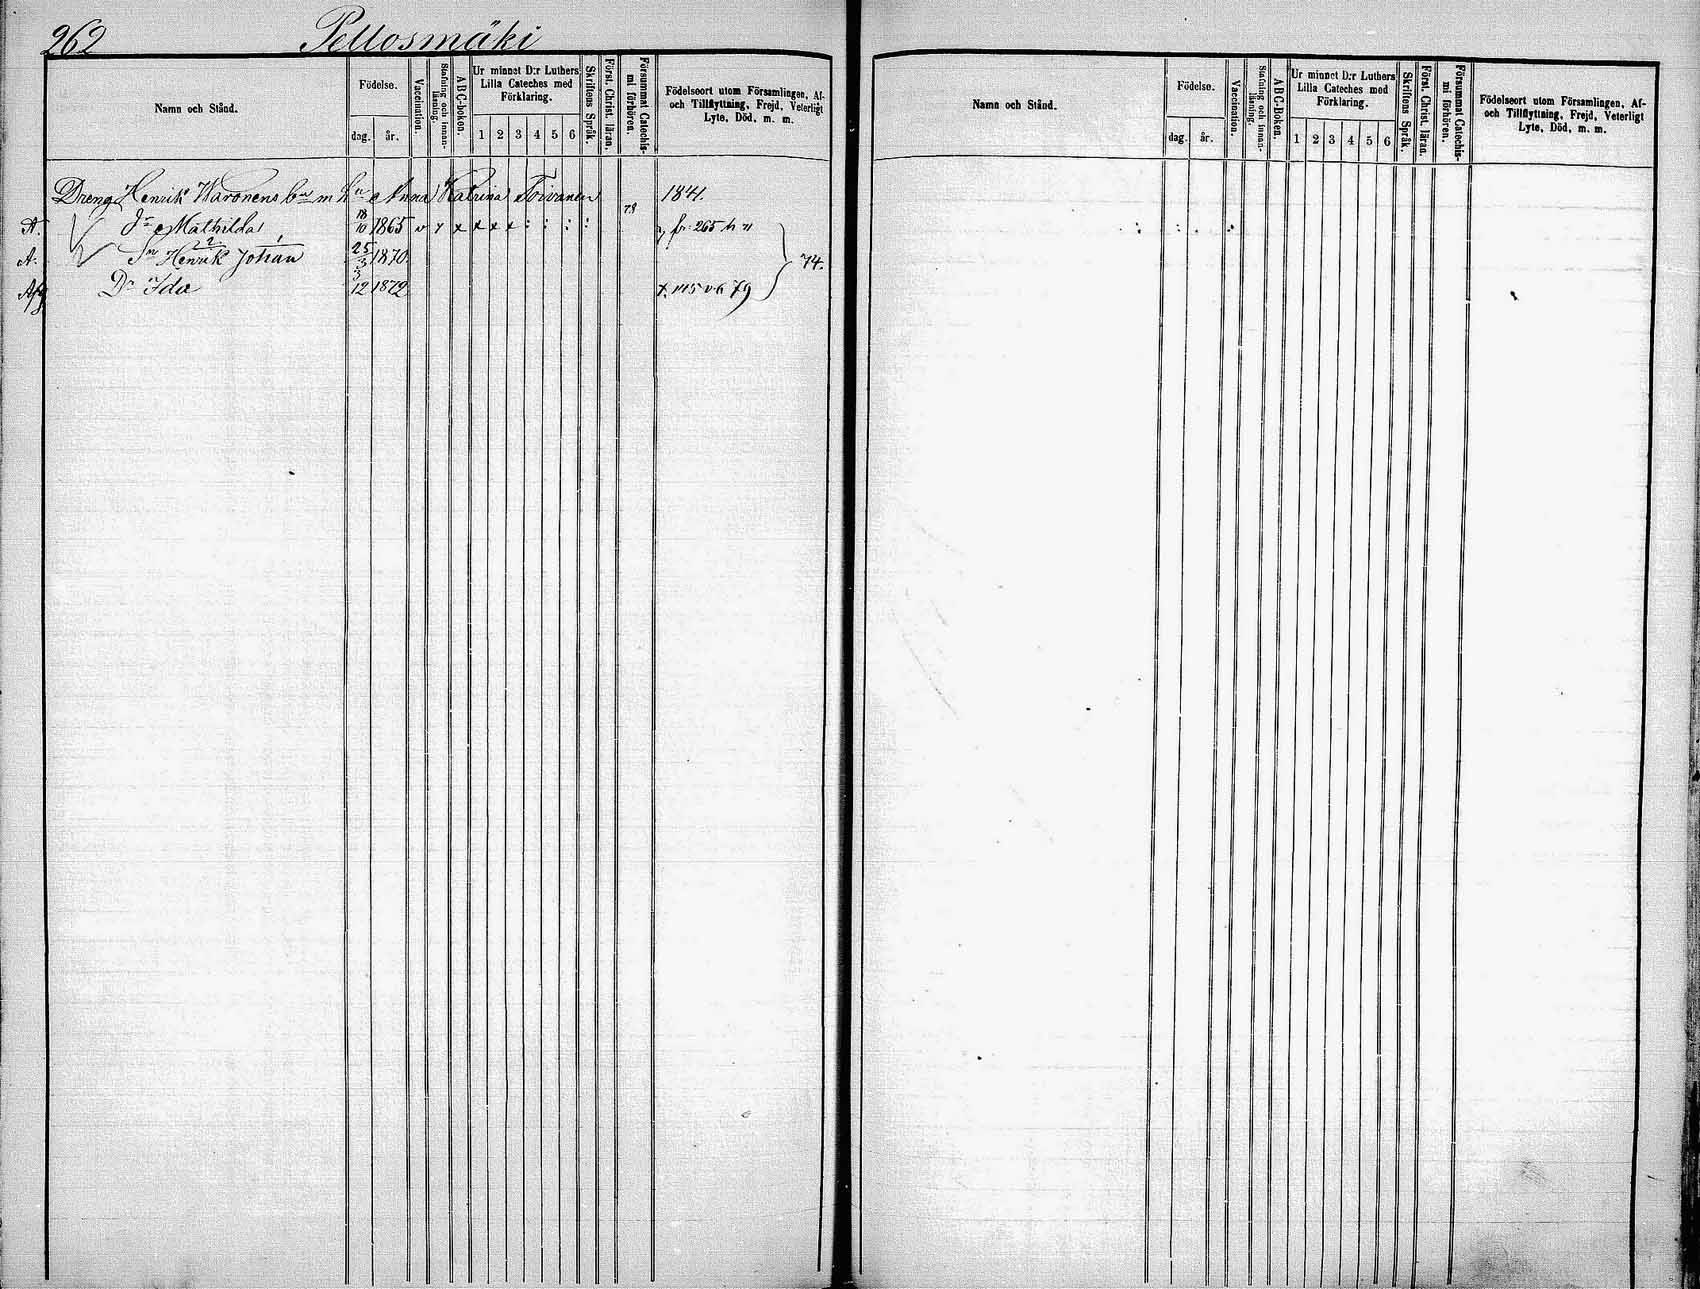 262 Pellosmäki
Namn och Stånd.
Födelse.
dag. år.
Vaccination.
Stafning och innanläsning.
ABC-boken.
Ur minnet D:r Luthers
Lilla Cateches med
Förklaring.
1 2 3 4 5 6
Skriftens Språk.
Först. Christ. läran.
Försummat Catechismi förhören.
Födelseort utom Församlingen, Af-
och Tillflyttning, Frejd, Veterligt
Lyte, Död, m. m.
Dreng Henrik Waronens Anna Katrina Toivanen 1841.
A. Mathilda 18/10 1865 v y x x x x : : : : 78 fr. 265
A. Henrik Johan 25/3 1870 74.
Afg Dr Ida 3/12 1872 79
Namn och Stånd.
Födelse.
dag. år.
Vaccination.
Stafning och innanläsning.
ABC-boken.
Ur minnet D:r Luthers
Lilla Cateches med
Förklaring.
1 2 3 4 5 6
Skriftens Språk.
Först. Christ. läran.
Försummat Catechismi förhören.
Födelseort utom Församlingen, Af-
och Tillflyttning, Frejd, Veterligt
Lyte, Död, m. m.